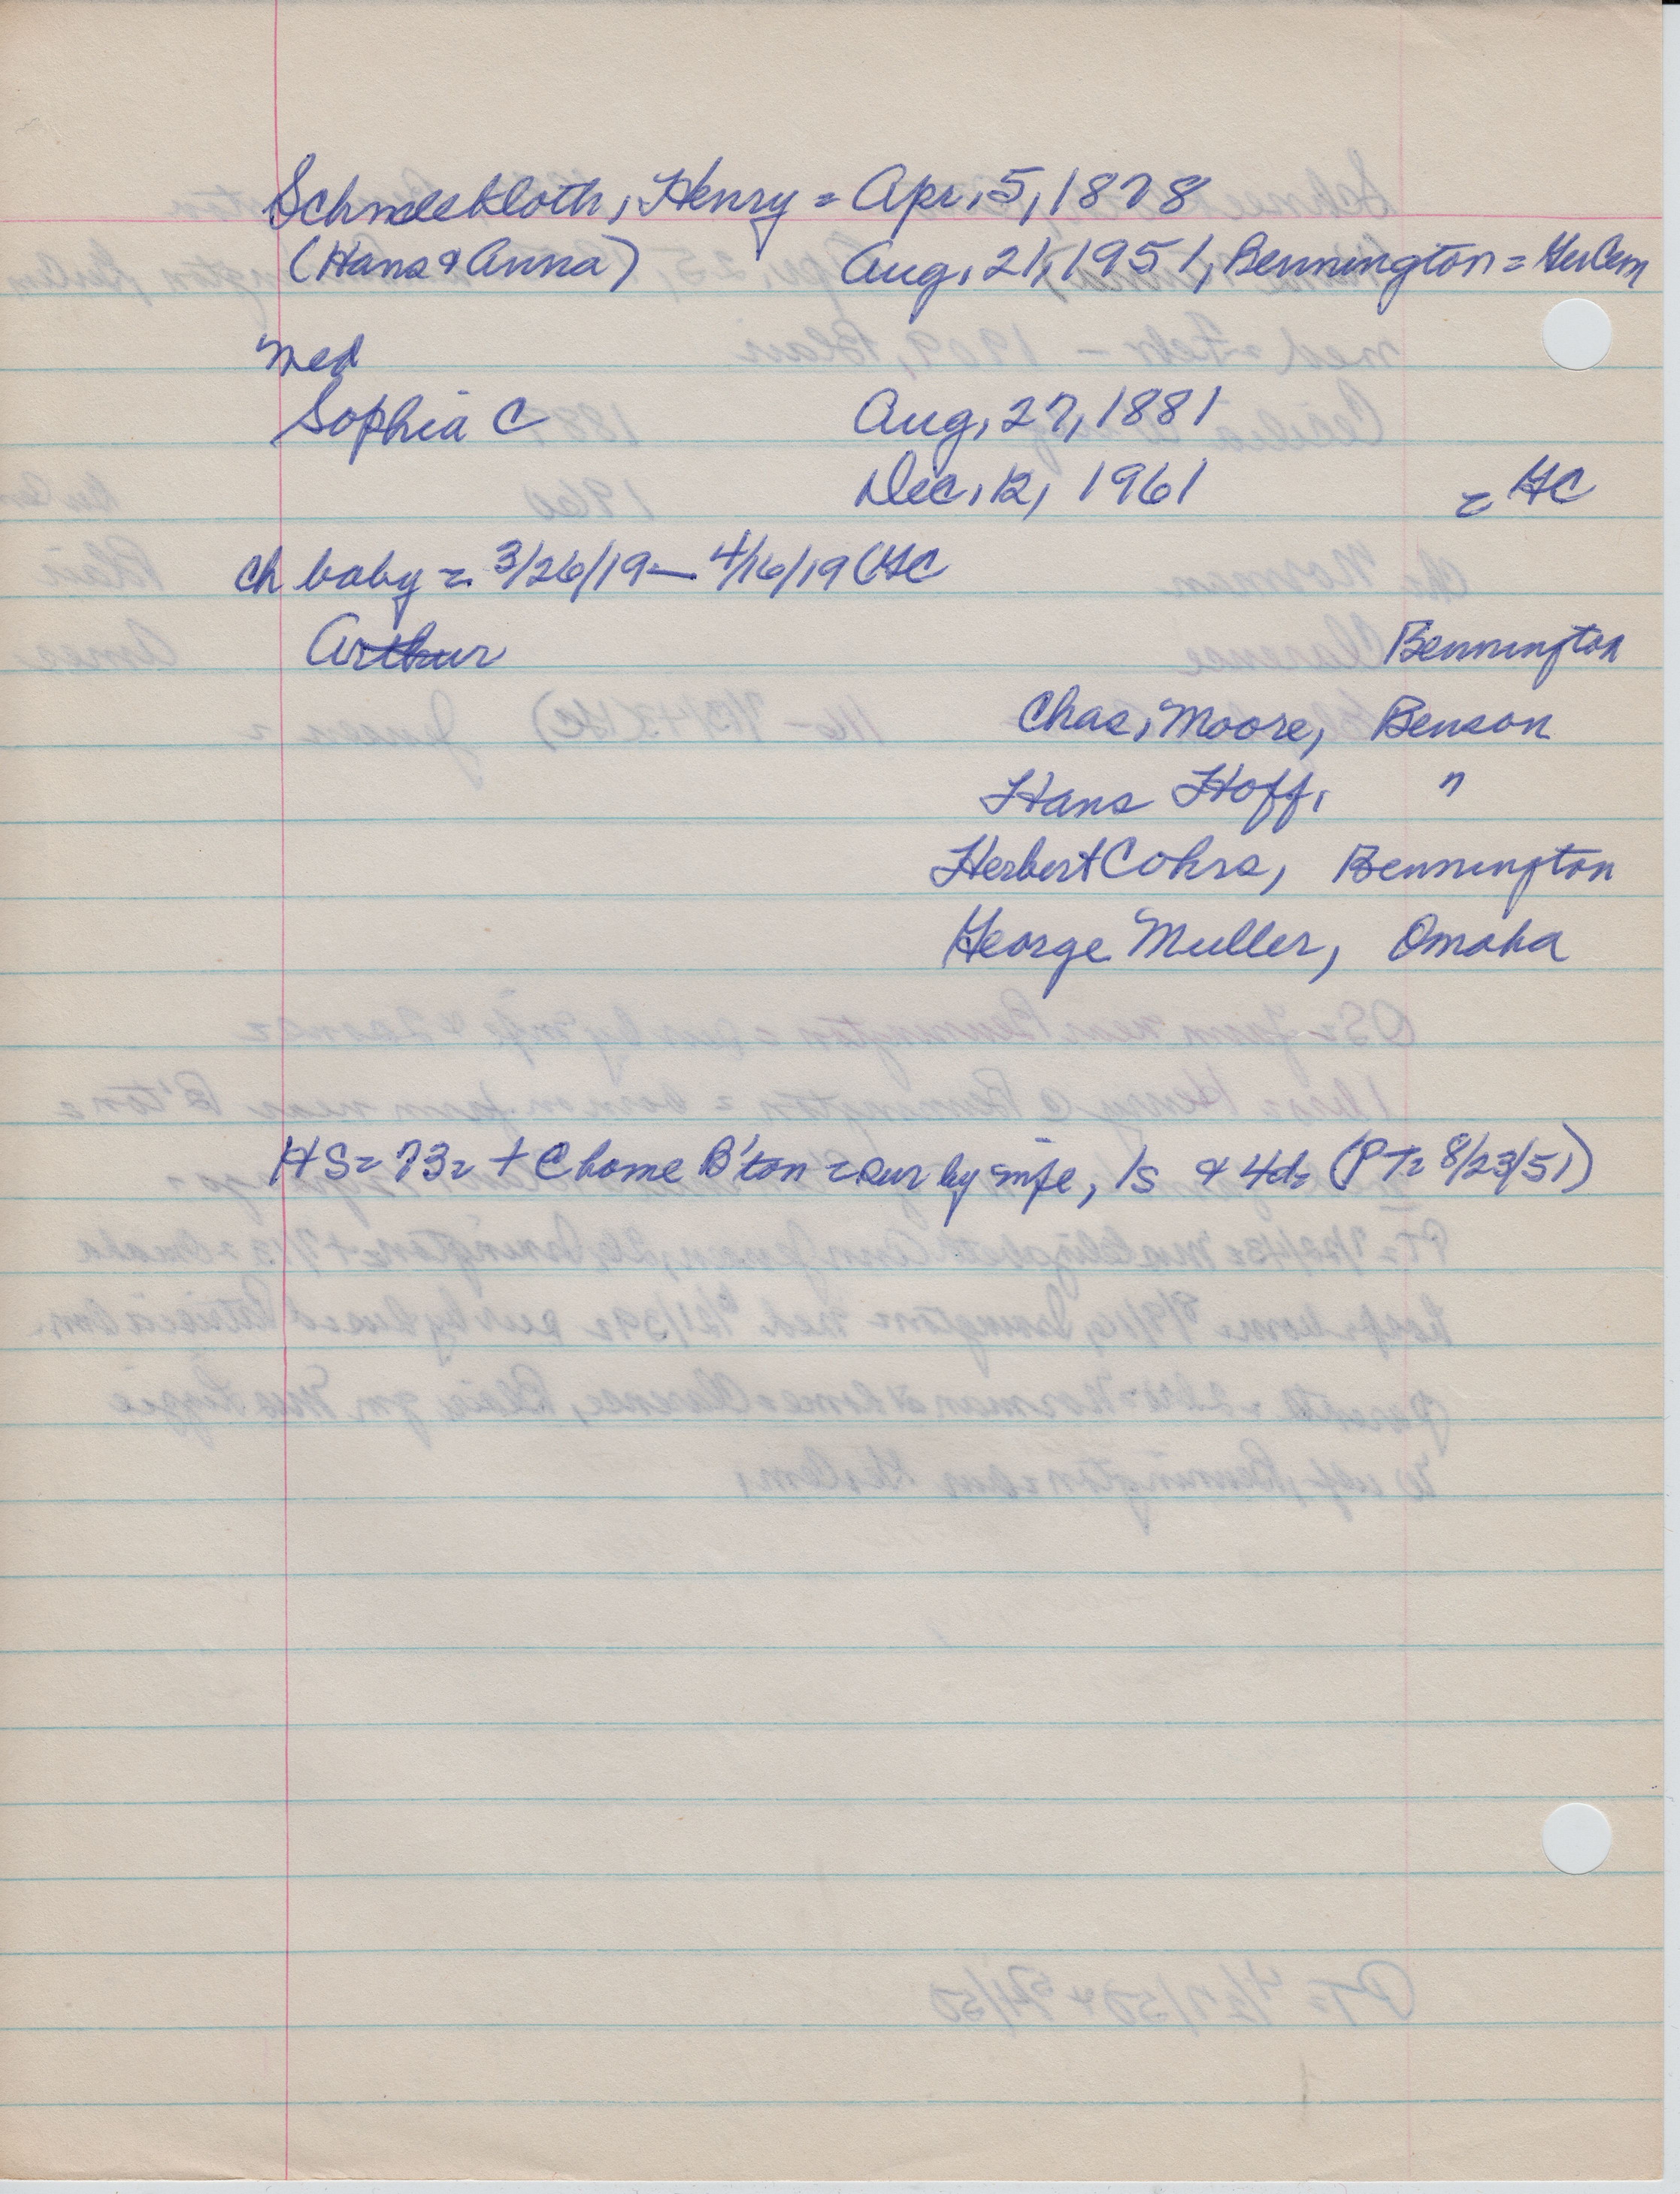 Schneekloth, Henry = Apr. 5, 1878
(Hans & Anna) Aug. 21, 1951, Bennington = GerCem
med
Sophia C Aug. 27, 1881
Dec. 12, 1961 = GC
ch baby = 3/26/19 – 4/16/19 (GC
Arthur Bennington
Chas. Moore, Benson
Hans Hoff, "
Herbert Cohrs, Bennington
George Muller, Omaha
HS = 73 = + @ home B'ton = sur by wife, 1s & 4d = (PT = 8/23/51)